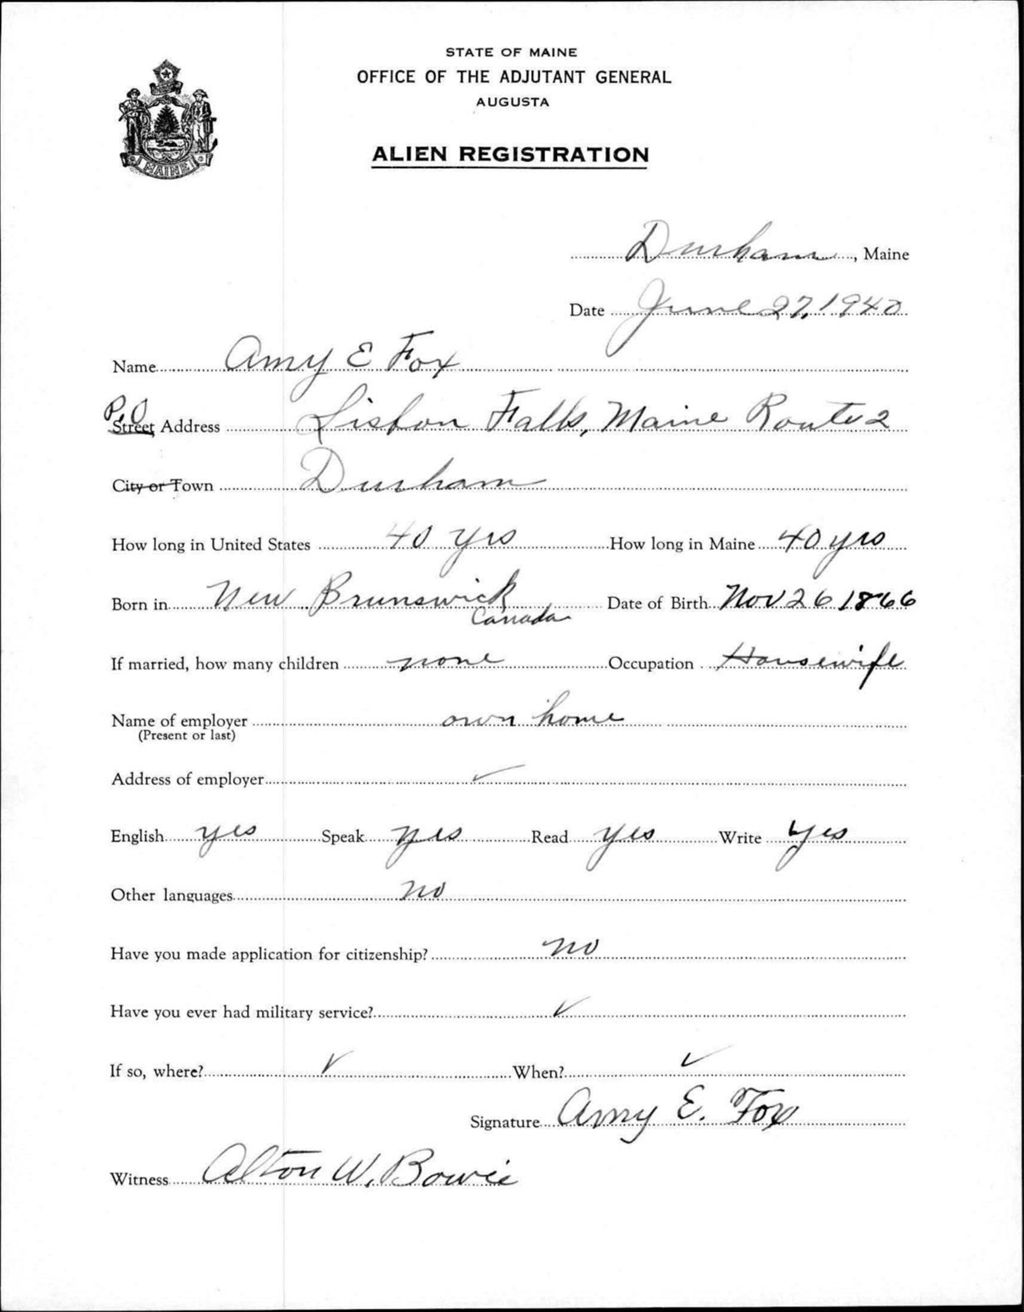 STATE OF MAINE
OFFICE OF THE ADJUTANT GENERAL
AUGUSTA
ALIEN REGISTRATION
MAINE
Durham, Maine
Date June 27, 1940
Name Amy E Fox
P.O. Street Address Lisbon Falls, Maine Route 2
City or Town Durham
How long in United States 40 yrs How long in Maine 40 yrs
Born in New Brunswick Canada Date of Birth Nov 26 1866
If married, how many children none Occupation Housewife
Name of employer own home
(Present or last)
Address of employer ✓
English yes Speak yes Read yes Write yes
Other languages no
Have you made application for citizenship? no
Have you ever had military service? ✓
If so, where? ✓ When? ✓
Signature Amy E. Fox
Witness Alton W. Bowie